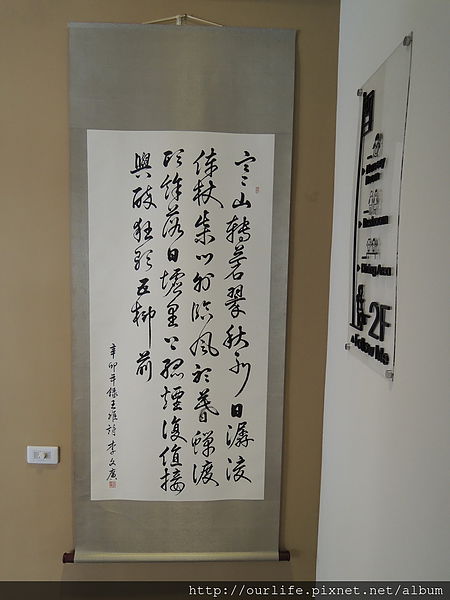 寒山轉蒼翠秋水日潺湲
倚杖柴門外臨風聽暮蟬渡
頭餘落日墟里上孤煙復值接
輿醉狂歌五柳前
辛卯年錄王維詩 李文廣
Room
Restroom
Dining Area
2F
Follow Me
http://ourlife.pixnet.net/album